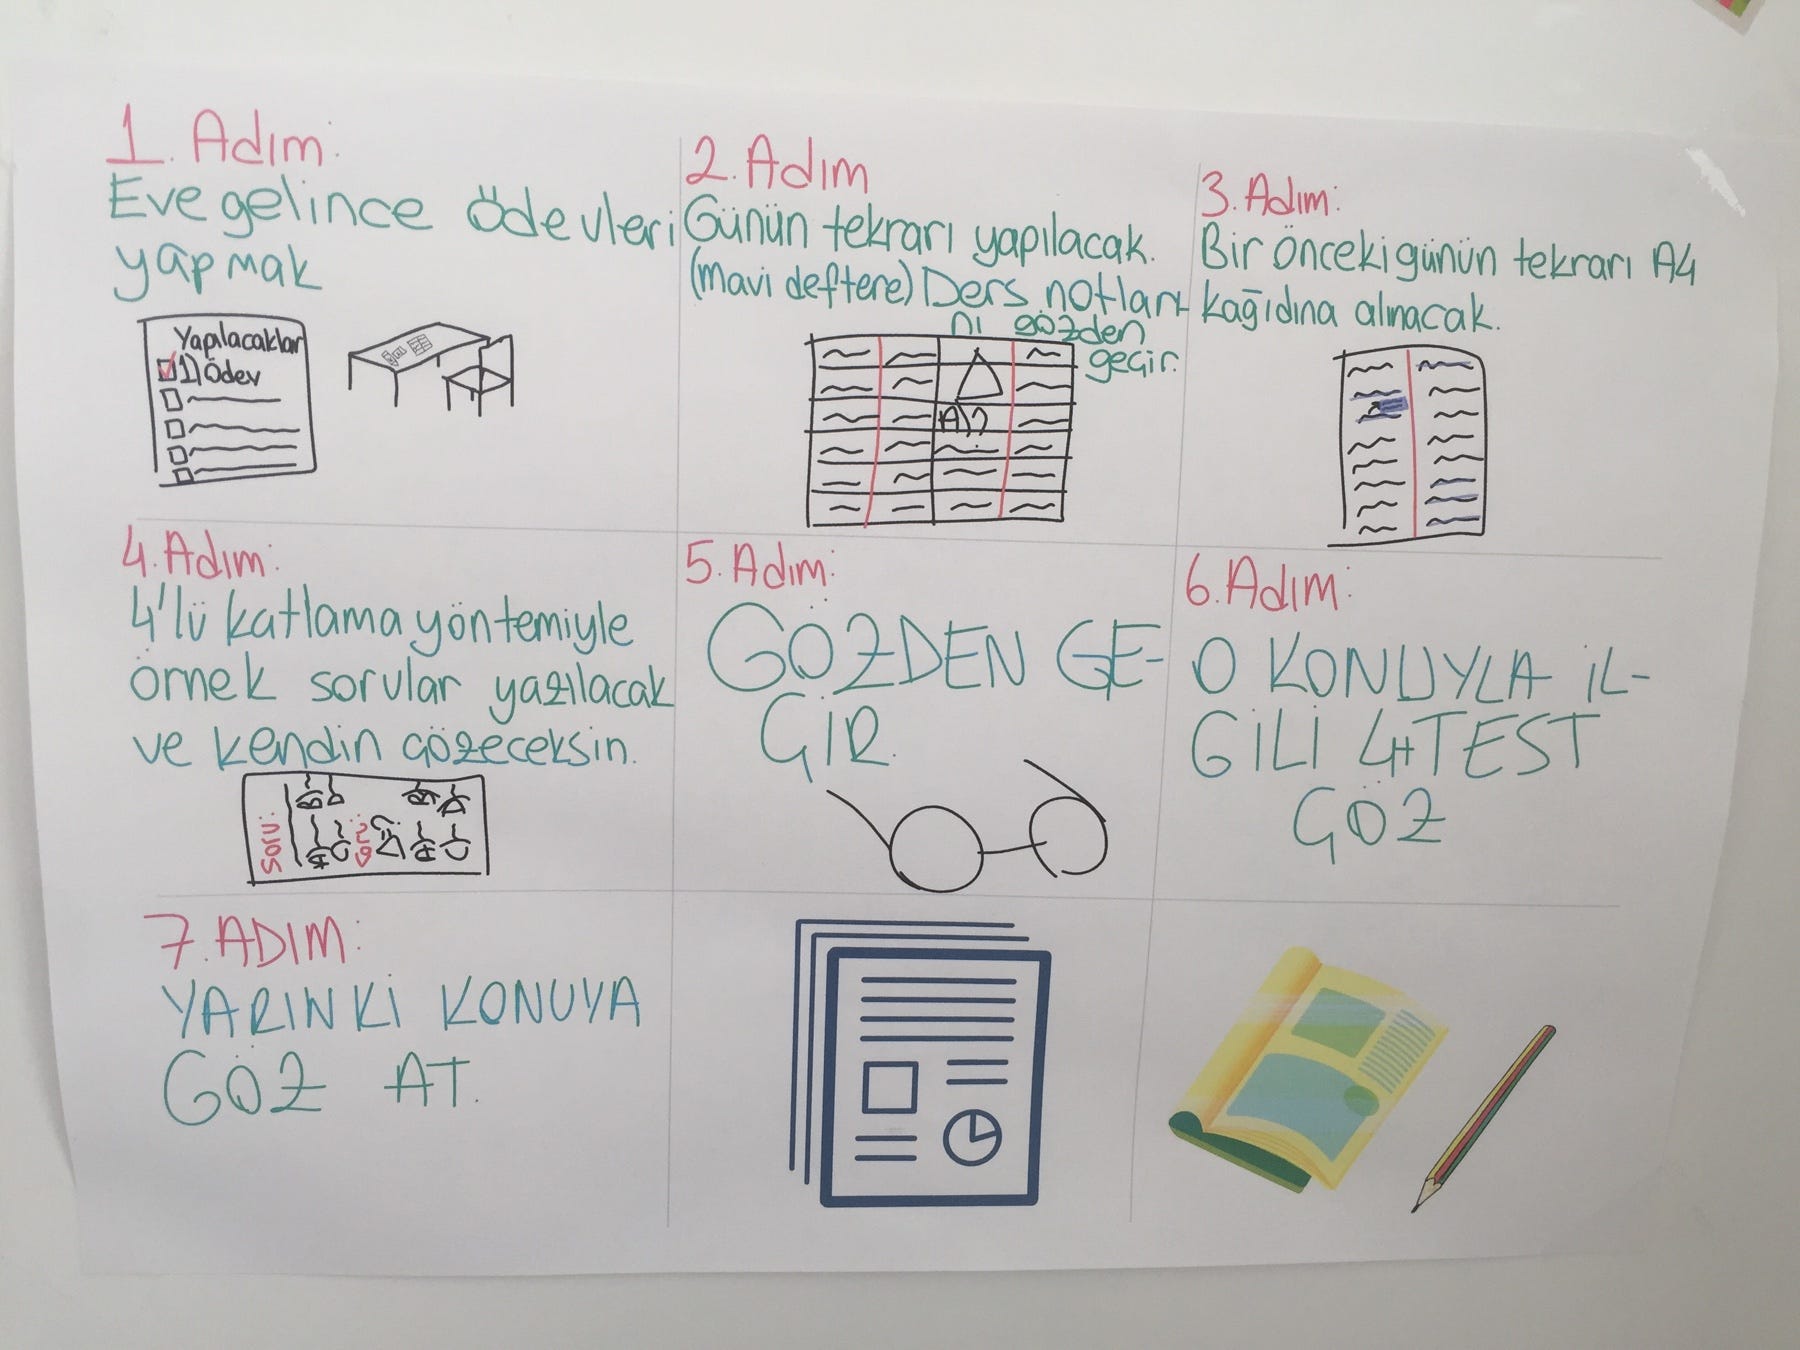 1. Adım:
Eve gelince ödevleri
yapmak
Yapılacaklar
1) Ödev
2. Adım
Günün tekrarı yapılacak.
(mavi deftere) Ders notları-
nı gözden
geçir.
A))
3. Adım:
Bir önceki günün tekrarı A4
kağıdına alınacak.
4. Adım:
4'lü katlama yöntemiyle
örnek sorular yazılacak
ve kendin çözeceksin.
Soru:
5. Adım:
GÖZDEN GE-
ÇİR.
6. Adım:
O KONUYLA İL-
GİLİ 4 TEST
ÇÖZ
7. ADIM:
YARINKİ KONUYA
GÖZ AT.